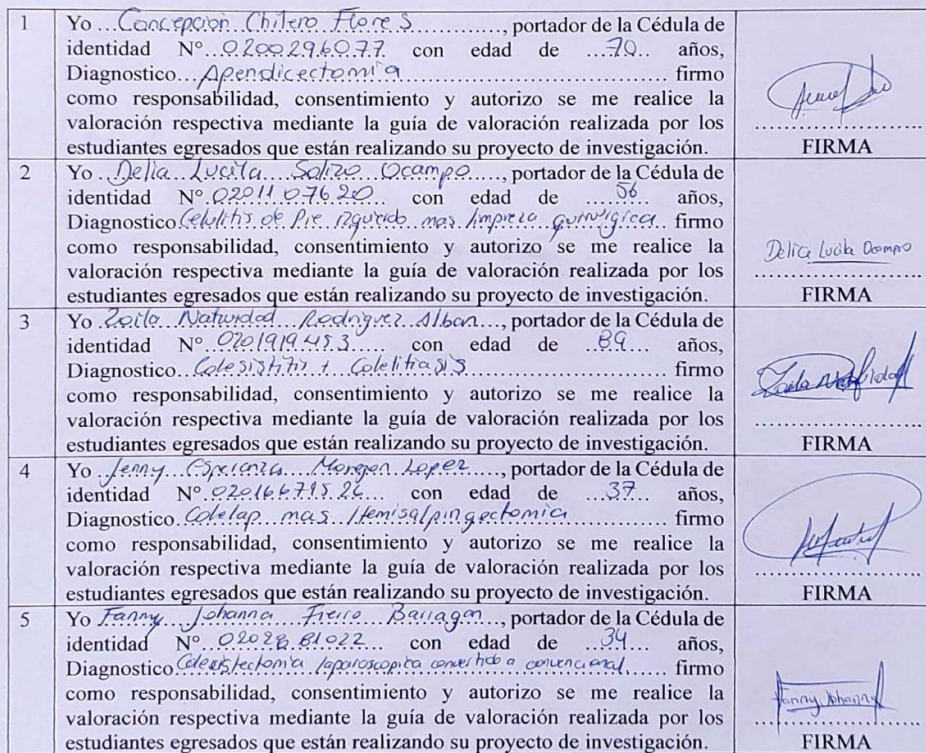 1 Yo ... Concepcion Chilero Flores ............., portador de la Cédula de
identidad N° ..0200296077 con edad de ...70... años,
Diagnostico... Apendicectomia ........................................ firmo
como responsabilidad, consentimiento y autorizo se me realice la
valoración respectiva mediante la guía de valoración realizada por los
estudiantes egresados que están realizando su proyecto de investigación.
FIRMA
2 Yo ..Delia Lucila Ocampo....., portador de la Cédula de
identidad N° 0201107620 con edad de ......56 años,
Diagnostico Celulitis de Pie izquierdo mas limpieza quirurgica.. firmo
como responsabilidad, consentimiento y autorizo se me realice la
valoración respectiva mediante la guía de valoración realizada por los
estudiantes egresados que están realizando su proyecto de investigación.
Delia Lucila Ocampo
FIRMA
3 Yo Zoila Natividad Rodriguez Alban...., portador de la Cédula de
identidad N° 0201919453 con edad de ..89 años,
Diagnostico... Colesistitis + Colelitiasis ........................ firmo
como responsabilidad, consentimiento y autorizo se me realice la
valoración respectiva mediante la guía de valoración realizada por los
estudiantes egresados que están realizando su proyecto de investigación.
Zoila Natividad
FIRMA
4 Yo Jenny Esperanza Lopez ....., portador de la Cédula de
identidad N° con edad de ...37... años,
Diagnostico. Colelap mas Hemisalpingectomia ................ firmo
como responsabilidad, consentimiento y autorizo se me realice la
valoración respectiva mediante la guía de valoración realizada por los
estudiantes egresados que están realizando su proyecto de investigación.
FIRMA
5 Yo Fanny Johanna Fierro Barragan....., portador de la Cédula de
identidad N° 0202881022 con edad de ...34... años,
Diagnostico laparoscopica convertido a convencional...... firmo
como responsabilidad, consentimiento y autorizo se me realice la
valoración respectiva mediante la guía de valoración realizada por los
estudiantes egresados que están realizando su proyecto de investigación.
Fanny Johanna
FIRMA